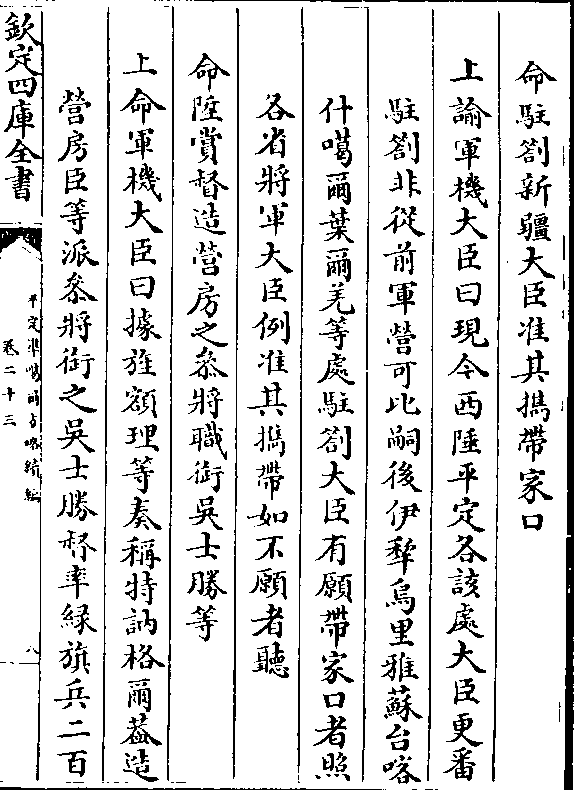 命駐劄新疆大臣准其攜帶家口
上諭軍機大臣曰現今西陲平定各該處大臣更番
駐劄非從前軍營可比嗣後伊犂烏里雅蘇台喀
什噶爾葉爾羌等處駐劄大臣有願帶家口者照
各省將軍大臣例准其攜帶如不願者聽
命陞賞督造營房之叅將職銜吳士勝等
上命軍機大臣曰據旌額理等奏稱特訥格爾葢造
營房臣等派叅將銜之吳士勝督率緑旗兵二百
欽定四庫全書
平定凖噶爾方略續編
卷二十三
八